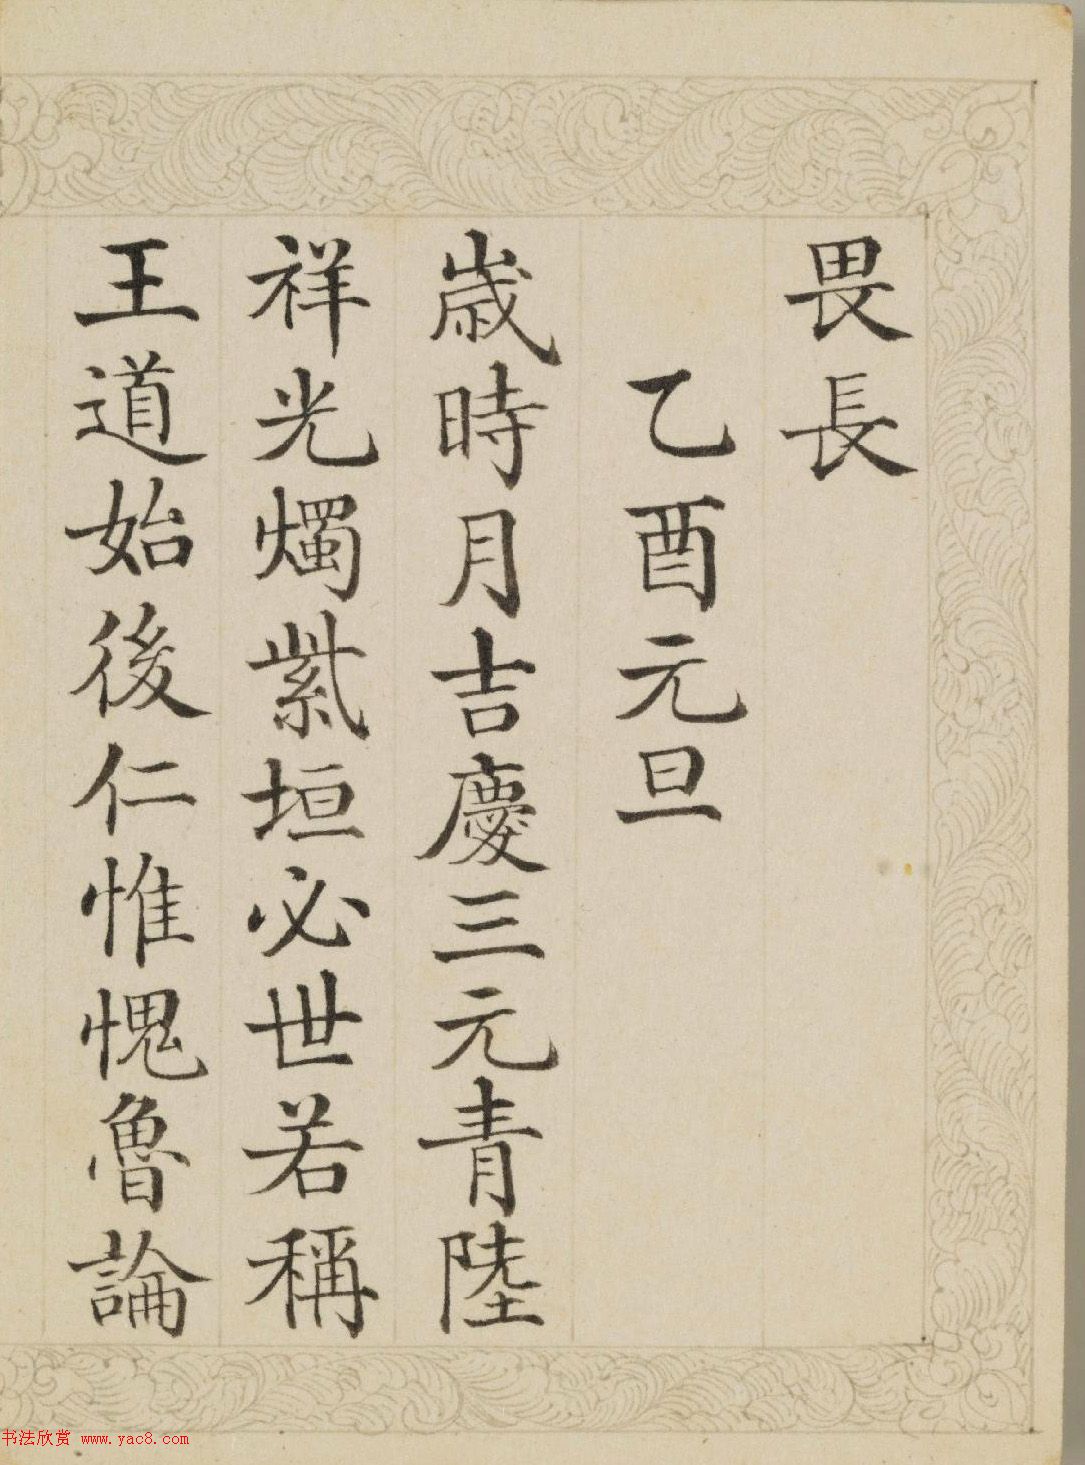 畏長
乙酉元旦
歲時月吉慶三元青陸
祥光燭紫垣必世若稱
王道始後仁惟愧魯論
书法欣赏 www.yac8.com